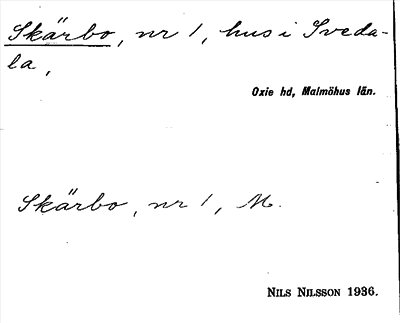 Skärbo, nr 1, hus i Sveda-
la,
Oxie hd, Malmöhus län.
Skärbo, nr 1, M.
NILS NILSSON 1936.